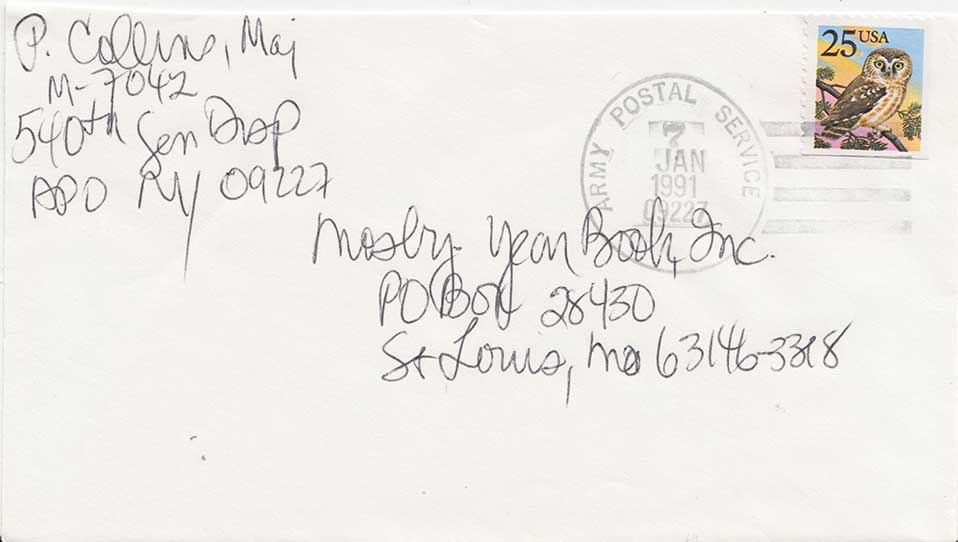 P. Collins, Maj
M-7042
540th Gen Disp
APO NY 09227
25 USA
ARMY POSTAL SERVICE
7
JAN
1991
09227
Mosby-Year Book, Inc.
PO Box 28430
St Louis, Mo 63146-3318